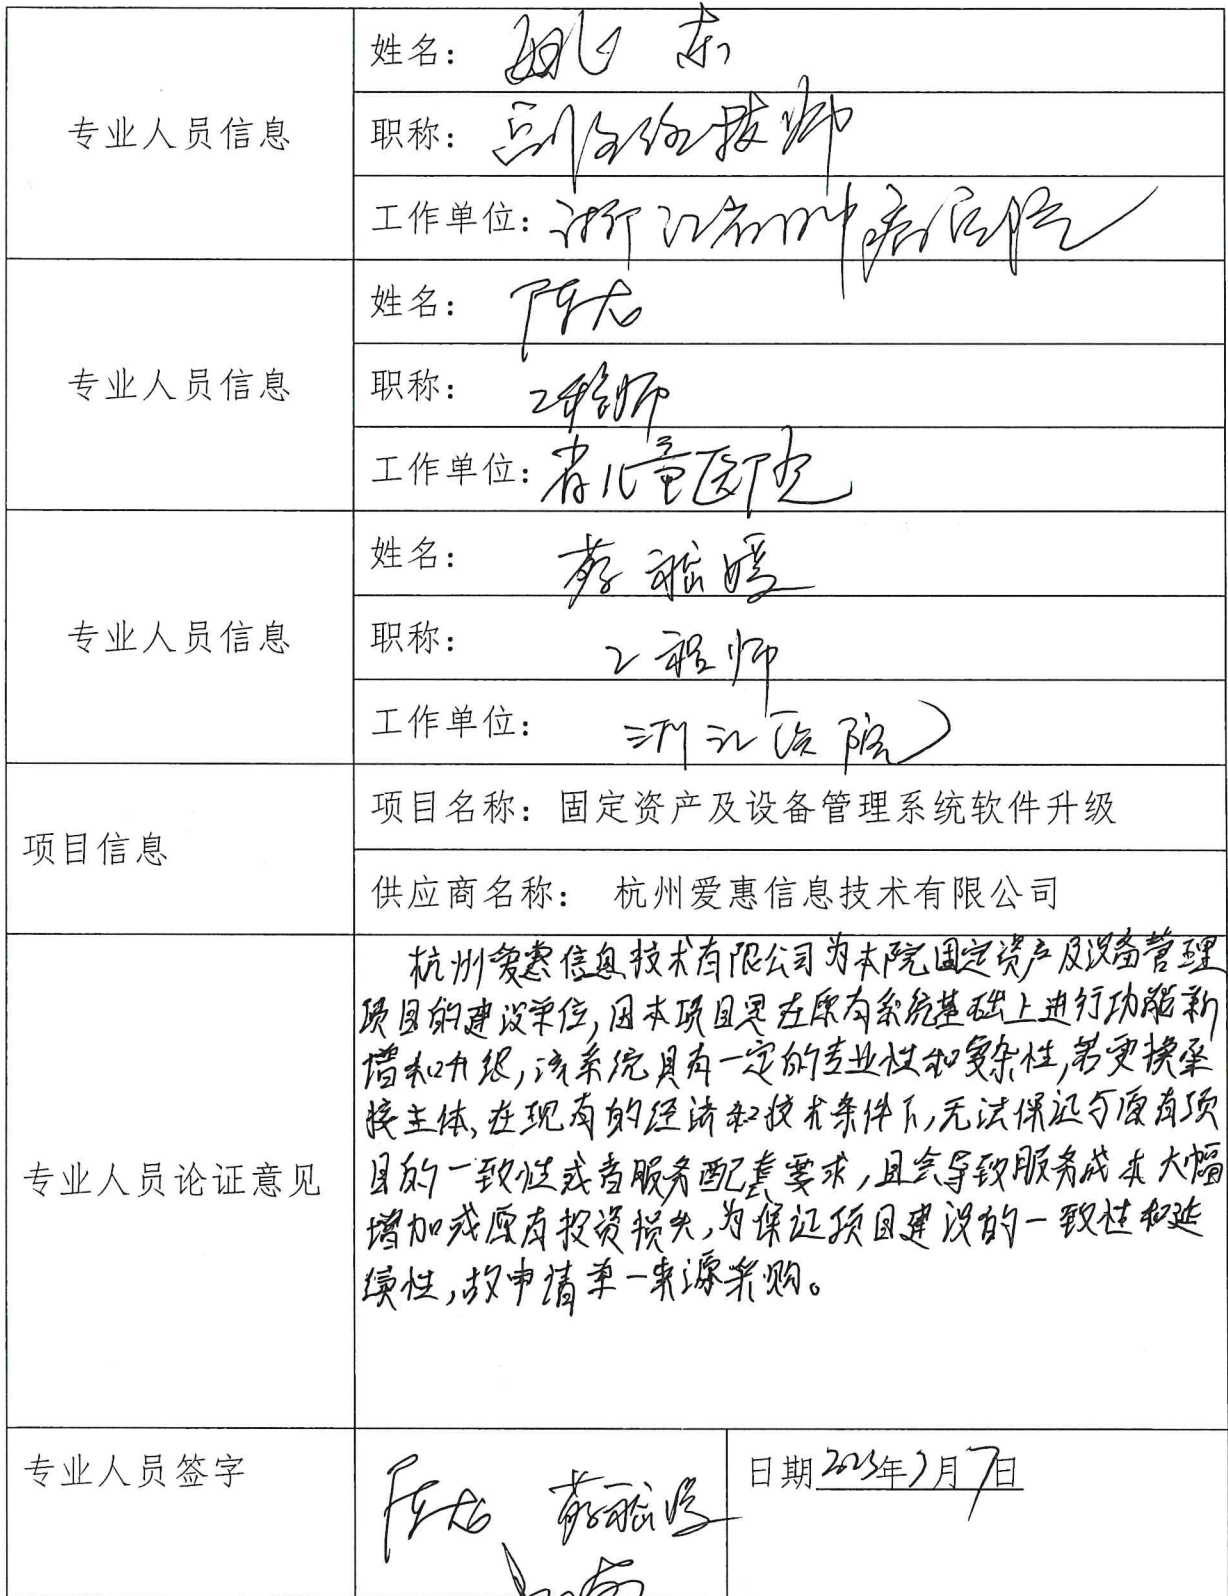 专业人员信息
姓名：
职称：副主任技师
工作单位：浙江省肿瘤医院
专业人员信息
姓名：陈龙
职称：工程师
工作单位：省儿童医院
专业人员信息
姓名：
职称：工程师
工作单位：浙江医院
项目信息
项目名称：固定资产及设备管理系统软件升级
供应商名称： 杭州爱惠信息技术有限公司
专业人员论证意见
杭州爱惠信息技术有限公司为本院固定资产及设备管理
项目的建设单位,因本项目是在原有系统基础上进行功能新
增和升级,该系统具有一定的专业性和复杂性,若更换承
接主体,在现有的经济和技术条件下,无法保证与原有项
目的一致性或者服务配套要求,且会导致服务成本大幅
增加或原有投资损失,为保证项目建设的一致性和延
续性,故申请单一来源采购。
专业人员签字
陈龙
日期2023年 月7日